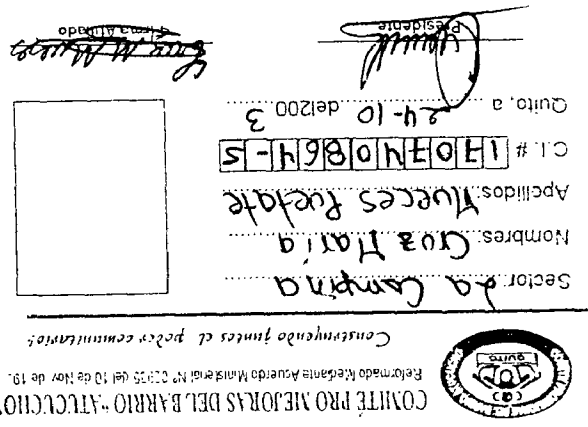 COMITÉ PRO MEJORAS DEL BARRIO "ATUCUCHO"
Reformado Mediante Acuerdo Ministerial Nº del 10 de Nov. de 19.
Construyendo juntos el poder comunitario!
QUITO
Sector: La Campiña
Nombres: Cruz María
Apellidos: Mueces Puetate
C.I. # 170740864-5
Quito, a 24-10 del 2003
Presidente
Firma Afiliado